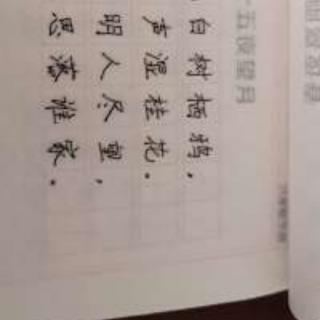 五夜望月
白树栖鸦，
声湿桂花。
明人尽望，
思落谁家。